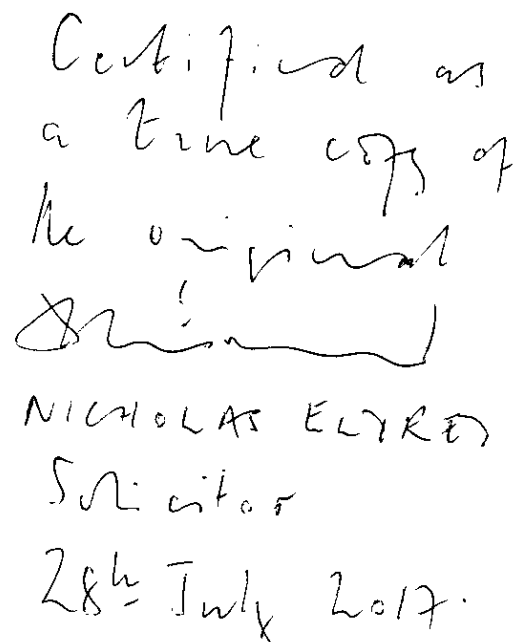 Certified as
a true copy of
the original
NICHOLAS
Solicitor
28th July 2017.